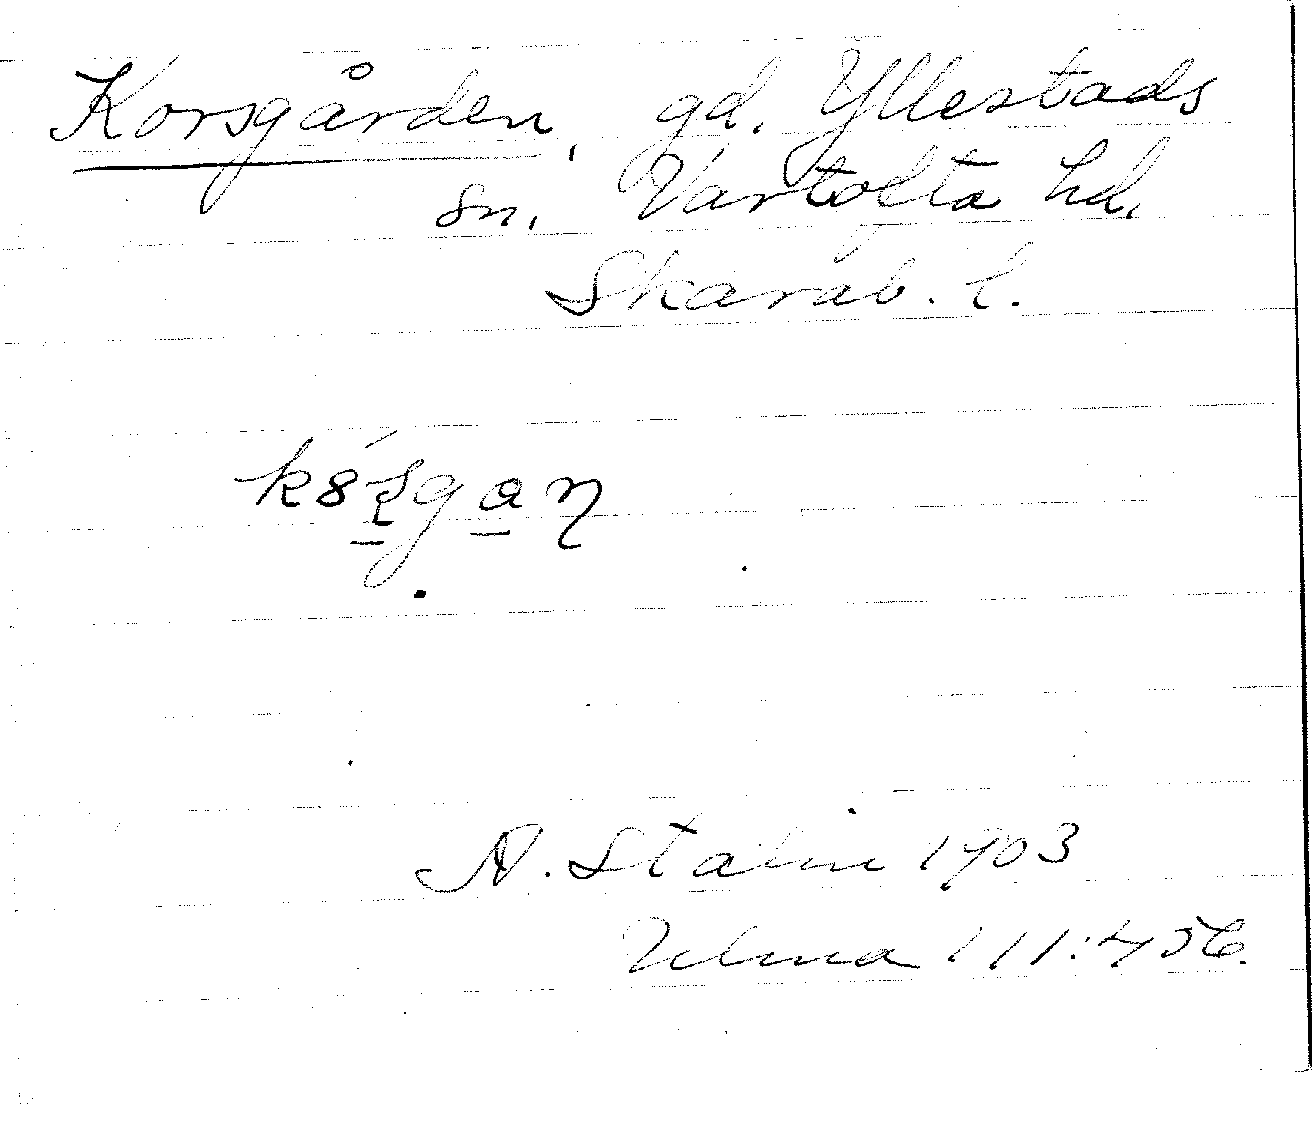 Korsgården, gd. Yllestads
sn. Vartofta hd.
Skarab. l.
A. Stalin 1903
Ulma 111:456.